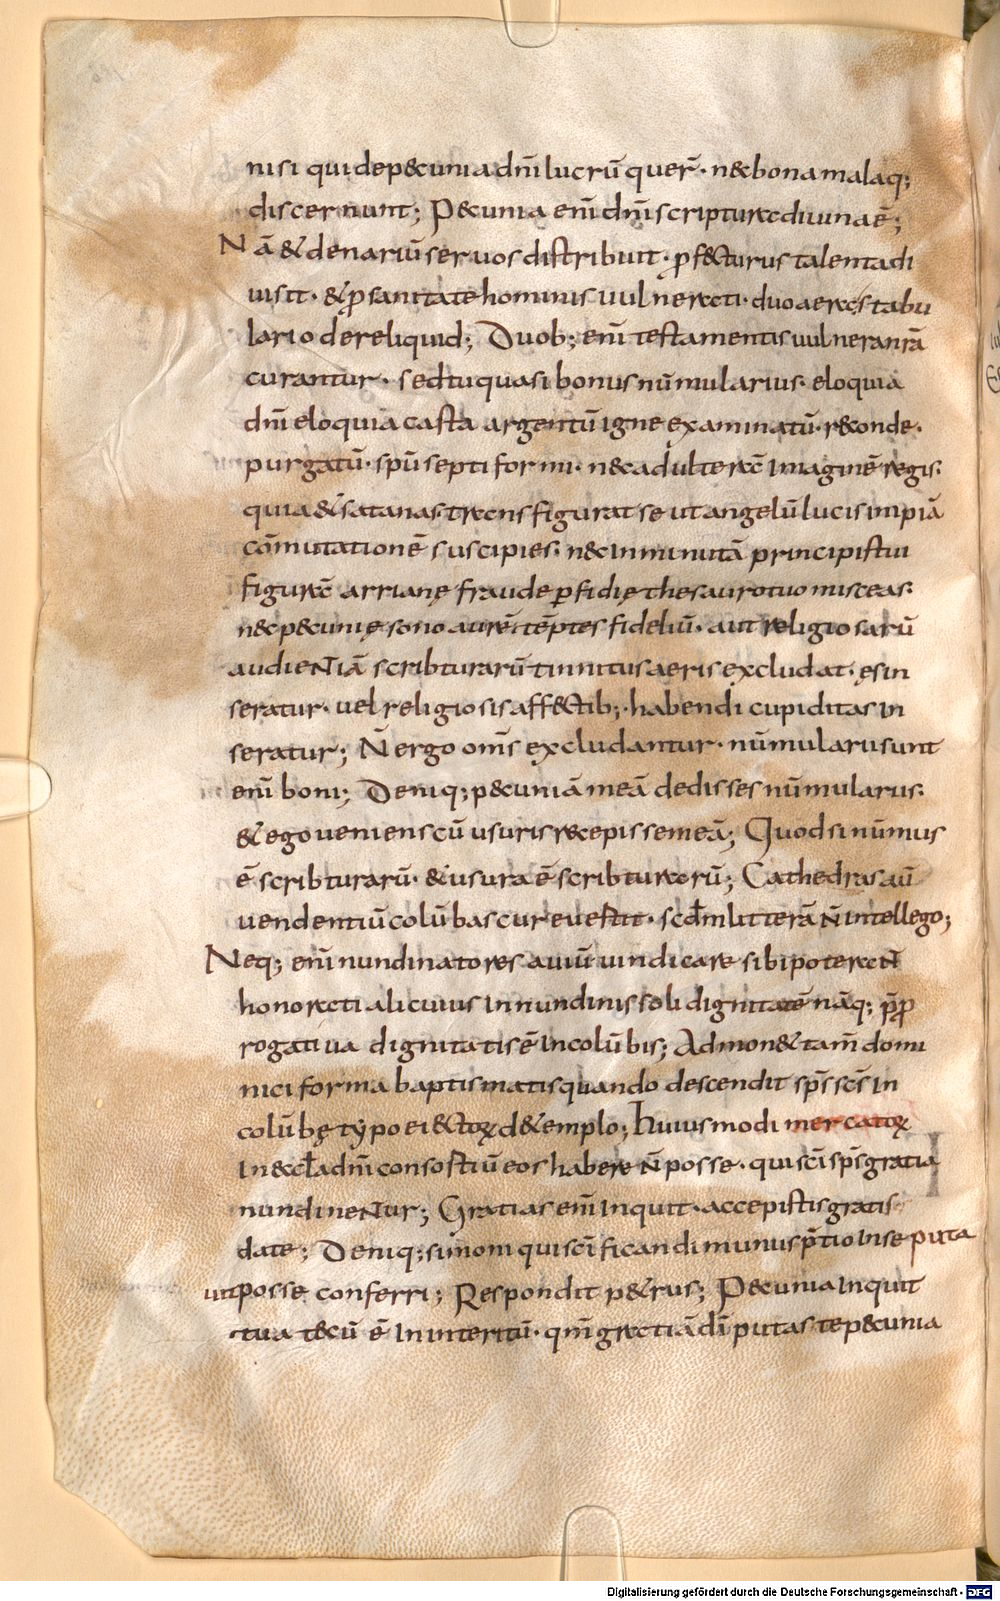 nisi qui de p&cunia dn̄i lucrū quer̄· n&bona malaq;
discernunt; P&cunia eni̅ dn̄i scriptura diuina ē;
Nā & denariū seruos distribuit· ꝓf&turus talenta di
uisit· & ꝓ sanitate hominis uulnerati· duo aera stabu
lario dereliquid; Duob; eni̅ testamentis uulnera nr̄a
curantur· sed tu quasi bonus nūmularius· eloquia
dn̄i eloquia casta argentū igne examinatū· r&conde·
purgatū· sp̄u septiformi· nec adulterā imaginē regis·
quia & satanas transfigurat se ut angelū lucis impiā
cōmutationē suscipies· nec inminutā principis tui
figurā arrianę fraude ꝑfidię thesauro tuo misceas·
nec p&cunię sono aurē tēptes fideliū· aut religiosarū
audieNtiā scribturarū tinnitus aeris excludat· ęs in
seratur· uel religiosis aff&tib;· habendi cupiditas in
seratur; N̄ ergo om̄s excludantur· nūmularii sunt
eni̅ boni; Deniq; p&cuniā meā dedisses nūmulariis·
& ego ueniens cū usuris recepissem eā; Quod si nūmus
ē scribturarū· & usura ē scribturarū; Cathedras aū
uendentiū colūbas cur euertit· scd̄m litterā n̄ intellego;
Neq; eni̅ nundinatores auiū uindicare sibi poteraN̄
honorati alicuius in nundinis soli dignitatē nāq; p̄ꝓ
rogatiua dignitatis ē in colūbis; Admon& tam̄ domi
nici forma baptismatis quando descendit sp̄s sc̄s in
colūbę typo eiectoꝝ d& emplo; Huiusmodi mercatoꝝ
in ęccl̄a dn̄i consortiū eos habere n̄ posse· qui sc̄i sp̄s gratiā
nundineNtur; Gratias eni̅ inquit· accepistis gratis·
date; Deniq; simoni qui sc̄ificandi munus p̄tio in se puta
uit posse conferri; Respondit p&rus; P&cunia inquit
tua tecū ē in interitū· qm̄ gratiā dī putas te p&cunia
Digitalisierung gefördert durch die Deutsche Forschungsgemeinschaft - DFG